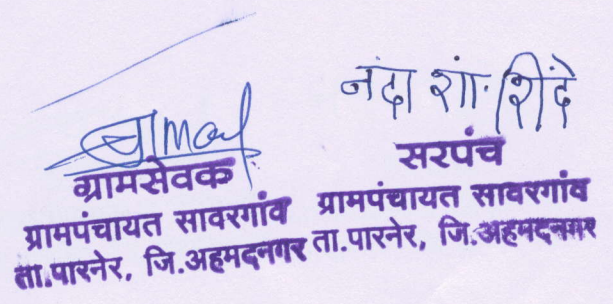 नंदा शां. शिंदे
ग्रामसेवक
ग्रामपंचायत सावरगांव
ता.पारनेर, जि.अहमदनगर
सरपंच
ग्रामपंचायत सावरगांव
ता.पारनेर, जि.अहमदनगर